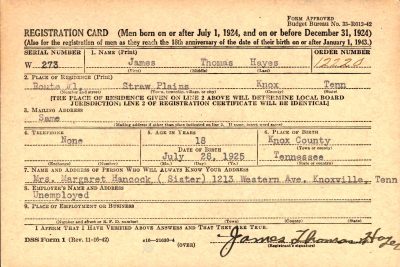 FORM APPROVED
Budget Bureau No. 33-R012-42
REGISTRATION CARD (Men born on or after July 1, 1924, and on or before December 31, 1924)
(Also for the registration of men as they reach the 18th anniversary of the date of their birth on or after January 1, 1943.)
SERIAL NUMBER 1. NAME (Print) ORDER NUMBER
W 273 James Thomas Hayes 12220
(First) (Middle) (Last)
2. PLACE OF RESIDENCE (Print)
Route #1, Straw Plains Knox Tenn
(Number and street) (Town, township, village, or city) (County) (State)
[THE PLACE OF RESIDENCE GIVEN ON LINE 2 ABOVE WILL DETERMINE LOCAL BOARD
JURISDICTION; LINE 2 OF REGISTRATION CERTIFICATE WILL BE IDENTICAL]
3. MAILING ADDRESS
Same
(Mailing address if other than place indicated on line 2. If same, insert word same)
4. TELEPHONE 5. AGE IN YEARS 6. PLACE OF BIRTH
None 18 Knox County
DATE OF BIRTH (Town) (County)
July 28, 1925 Tennessee
(Exchange) (Number) (Mo.) (Day) (Yr.) (State or country)
7. NAME AND ADDRESS OF PERSON WHO WILL ALWAYS KNOW YOUR ADDRESS
Mrs. Margaret Hancock ( Sister) 1213 Western Ave. Knoxville, Tenn
8. EMPLOYER'S NAME AND ADDRESS
Unemployed
9. PLACE OF EMPLOYMENT OR BUSINESS
(Number and street or R. F. D. number) (Town) (County) (State)
I AFFIRM THAT I HAVE VERIFIED ABOVE ANSWERS AND THAT THEY ARE TRUE.
DSS Form 1 (Rev. 11-16-42) (OVER) James Thomas Hayes
(Registrant's signature)